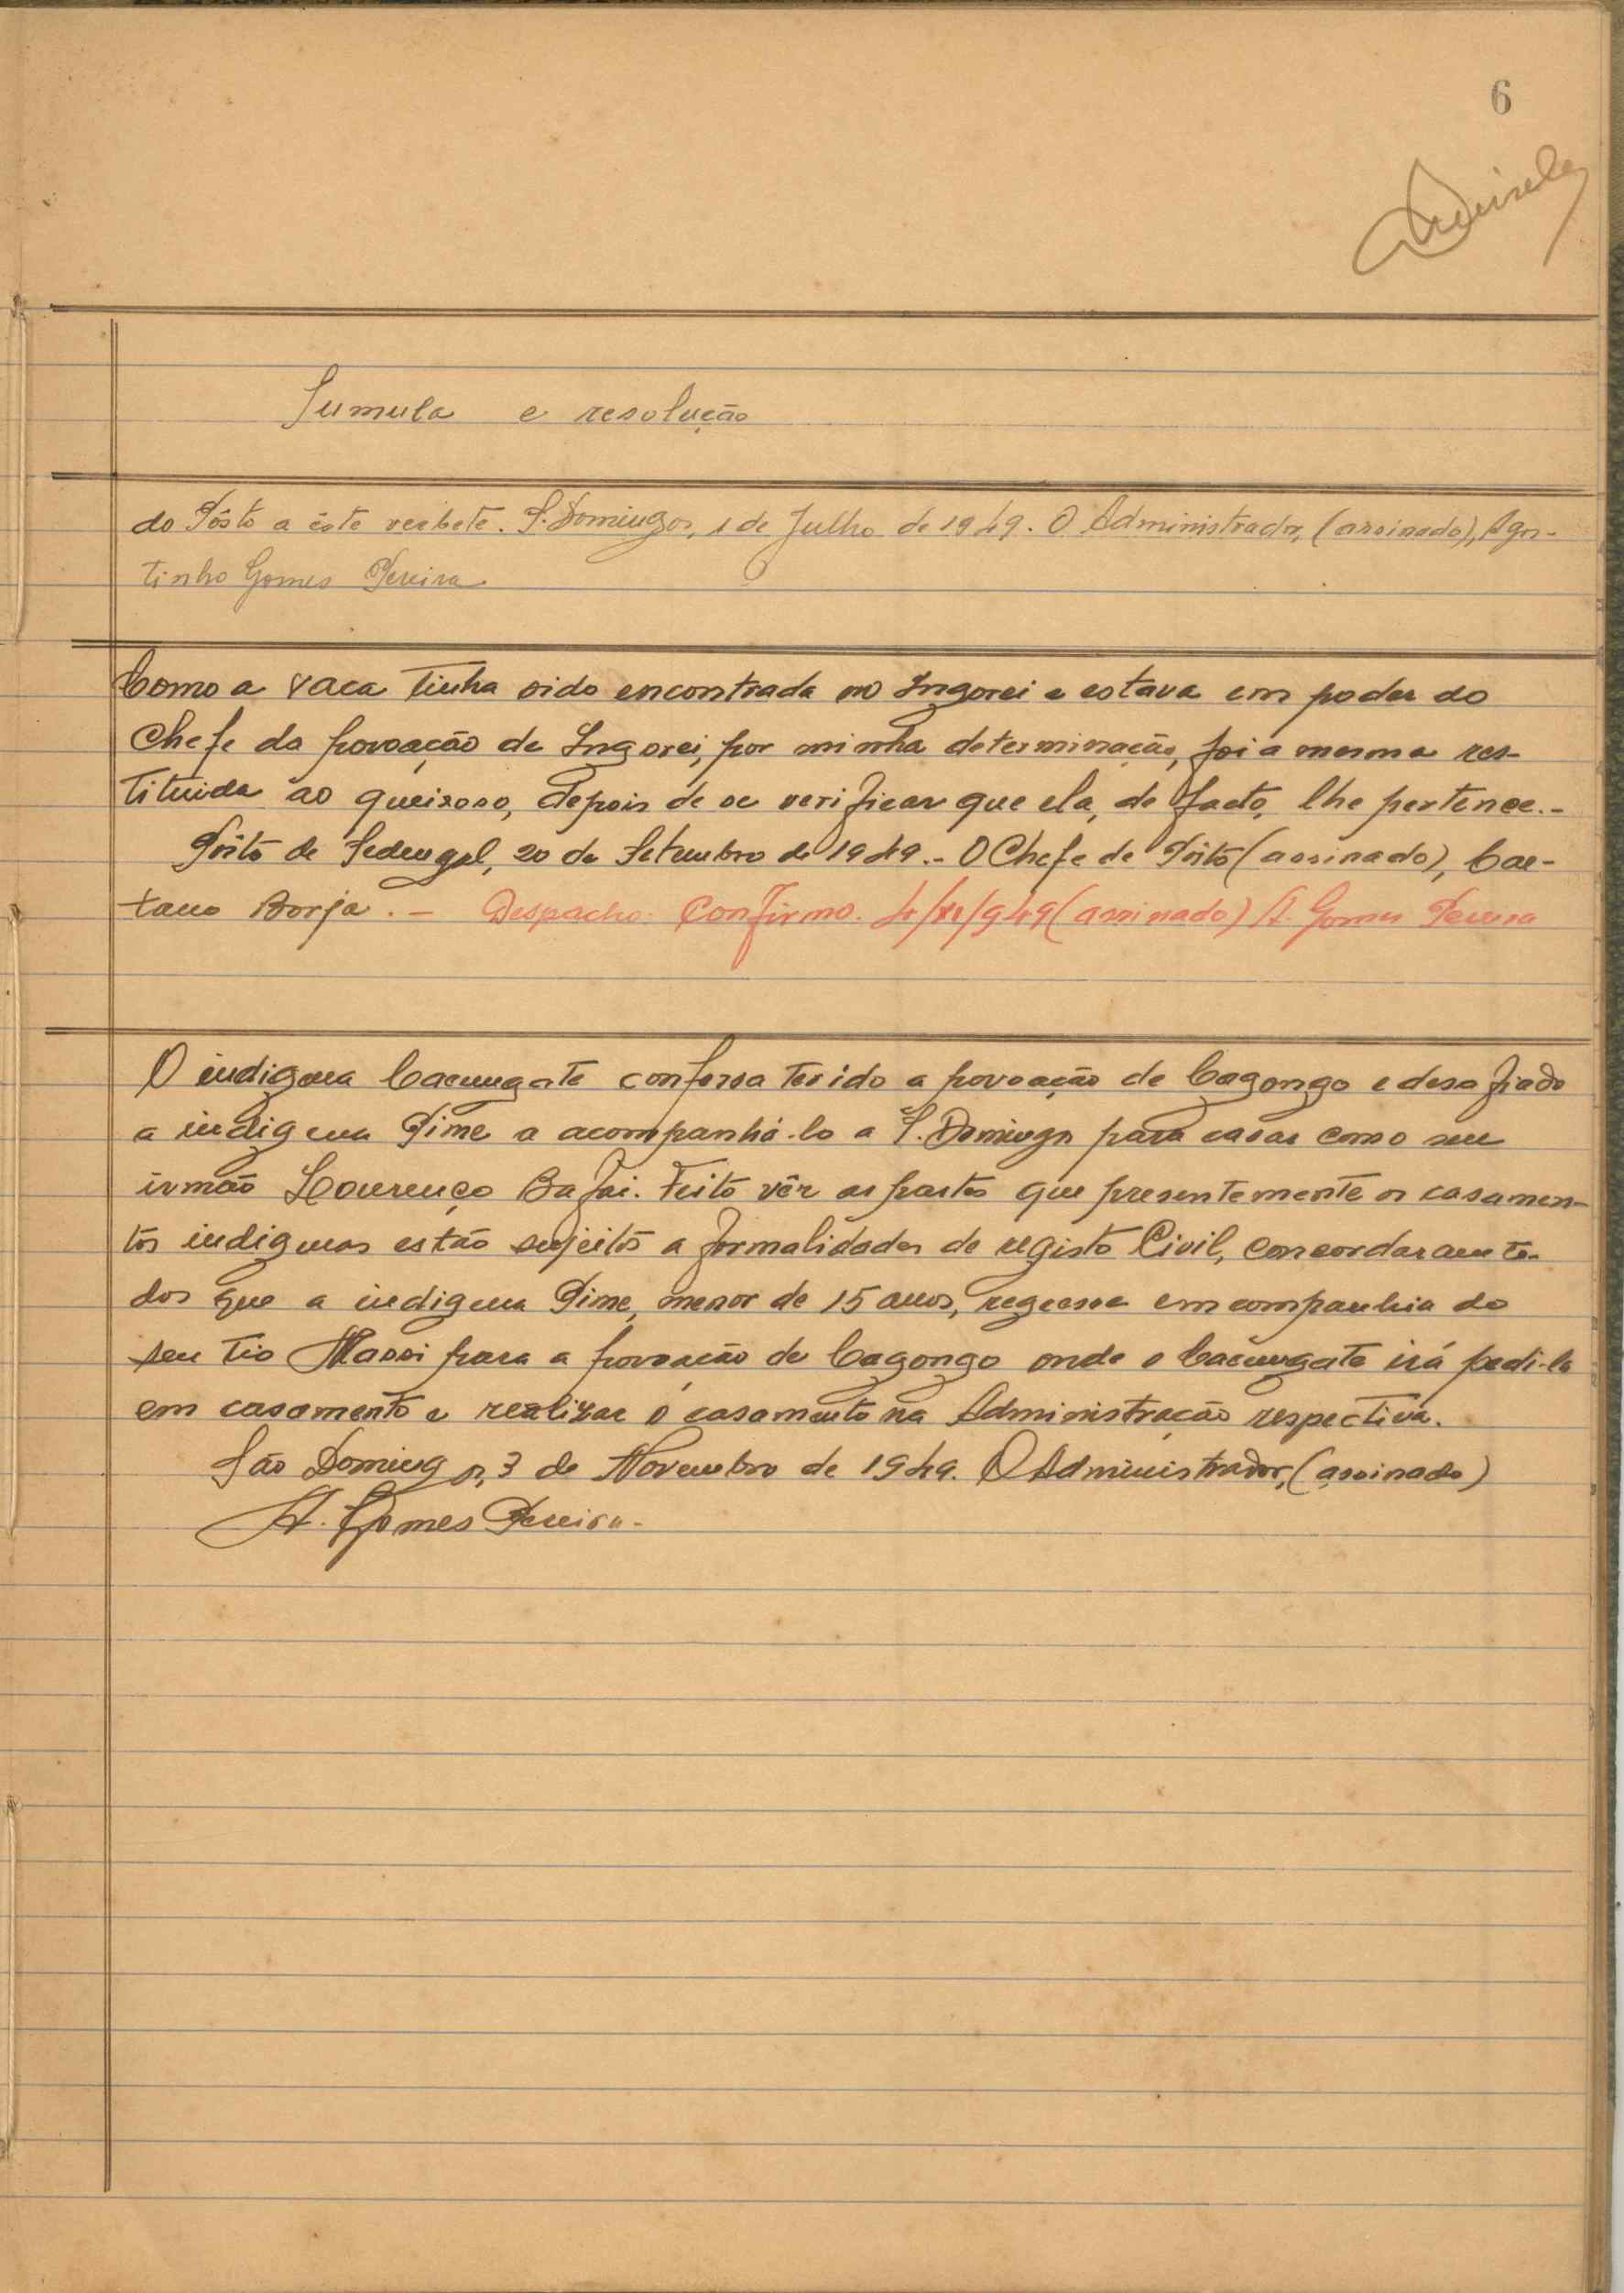 6
Sumula e resolução
do Pôsto a êste verbete. S. Domingos, 1 de Julho de 1949. O Administrador, (assinado), Agos-
tinho Gomes Pereira
Como a vaca tinha sido encontrada no Ingorei e estava em poder do
Chefe da povoação de Ingorei, por minha determinação, foi a mesma res-
tituida ao queixoso, depois de se verificar que ela, de facto, lhe pertence.-
Pôsto de Sedengal, 20 de Setembro de 1949.- O Chefe de Pôsto (assinado), Cae-
tano Borja.- Despacho: Confirmo. 4/XI/949 (assinado) A. Gomes Pereira
O indigena Cacungate confessa ter ido a povoação de Cagongo e desafiado
a indigena Pime a acompanhá-lo a S. Domingos para casar com o seu
irmão Lourenço Bafai. Feito vêr as partes que presentemente os casamen-
tos indigenas estão sujeitos a formalidades de registo Civil, concordaram to-
dos que a indigena Pime, menor de 15 anos, regresse em companhia do
seu tio Massi para a povoação de Cagongo onde o Cacungate irá pedi-la
em casamento e realizar o casamento na Administração respectiva.
São Domingos, 3 de Novembro de 1949. O Administrador, (assinado)
A. Gomes Pereira.-